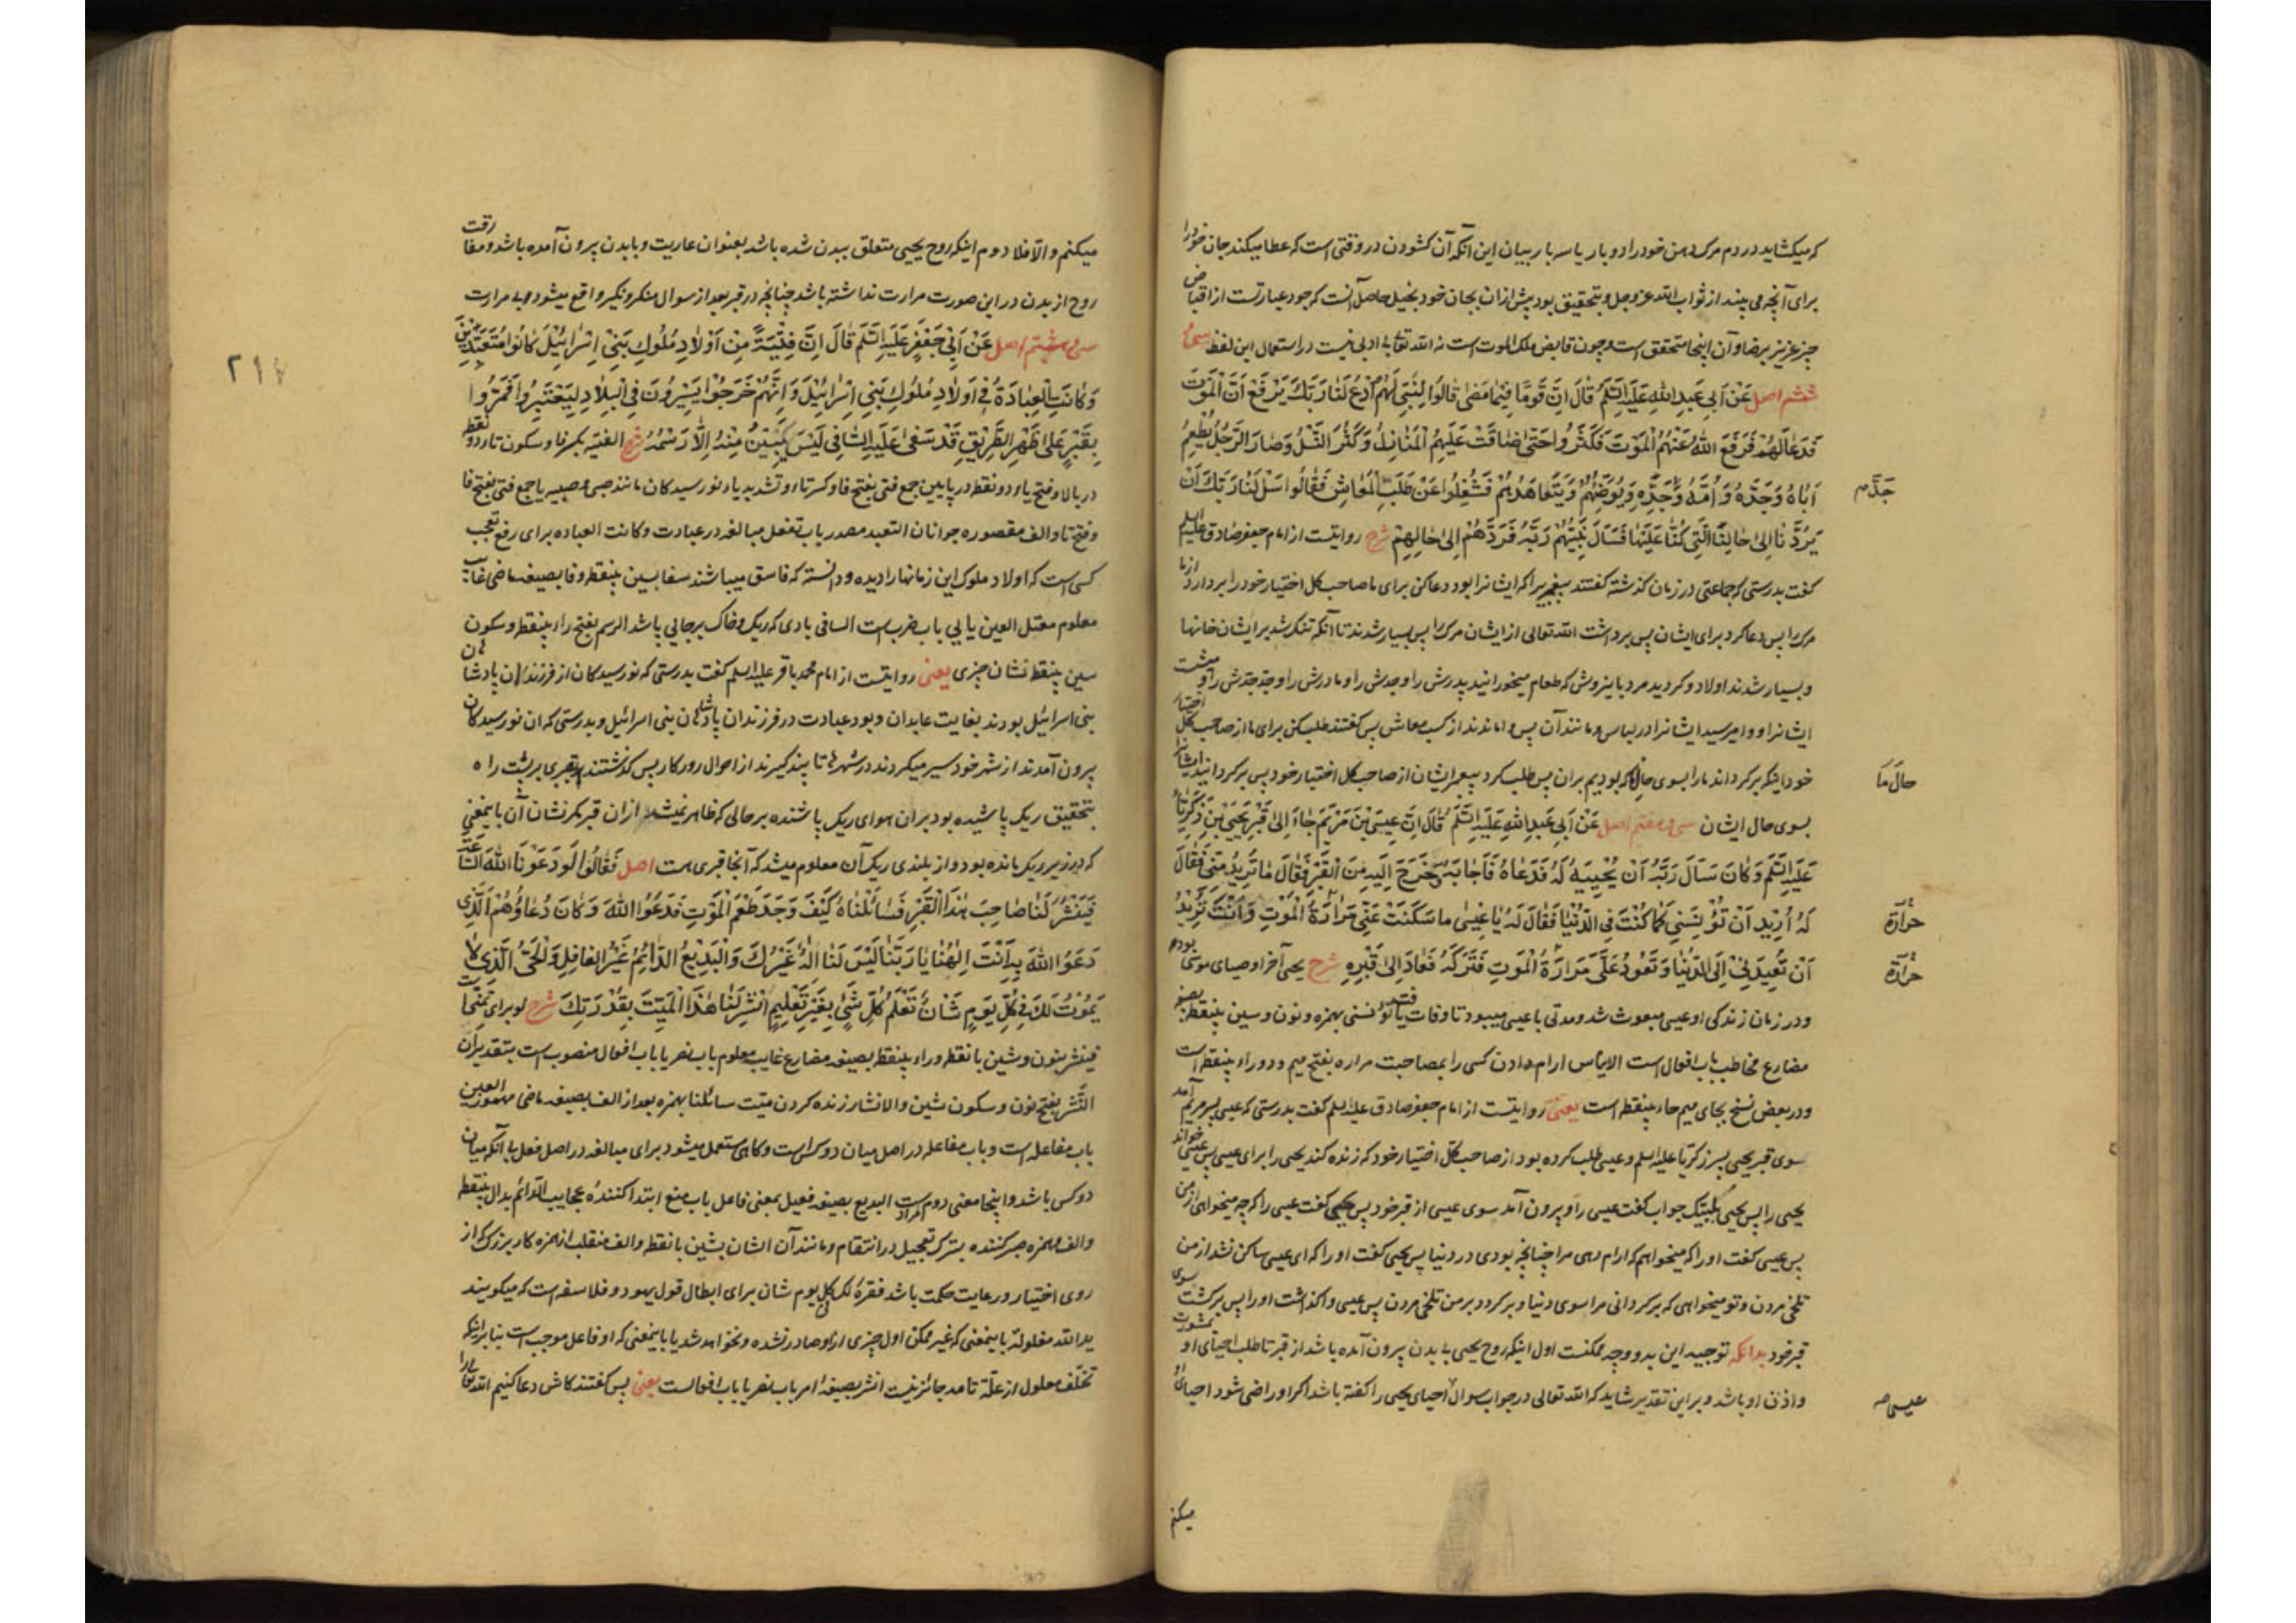 که میکشاید در دم مرک دهن خود را دو بار یا سه بار بیان این آنکه آن کشودن در وقتی است که عطا میکند جان خود را
برای آنچه می بیند از ثواب الله عز و جل و بتحقیق بود پیش ازان بجان خود بخیل حاصل آنست که جود عبارتست از اقباض
چیز عزیز برضا و آن اینجا متحقق است و چون قابض ملک الموت است نه الله تعالی بی ادبی نیست در استعمال این لفظ سی و
ششم اصل عَنْ أَبِي عَبْدِ اللهِ عَلَيْهِ السَّلَم قَالَ اِنَّ قَوْمًا فِيمَا مَضَى قَالُوا لِنَبِيٍّ لَهُمْ اُدْعُ لَنَا رَبَّكَ يَرْفَعْ عَنَّا الْمَوْتَ
فَدَعَا لَهُمْ فَرَفَعَ اللهُ عَنْهُمُ الْمَوْتَ فَكَثُرُوا حَتّى ضَاقَتْ عَلَيْهِمُ الْمَنَازِلُ وَكَثُرَ النَّسْلُ وَصَارَ الرَّجُلُ يُطْعِمُ
أَبَاهُ وَجَدَّهُ وَاُمَّهُ وَجَدَّ جَدِّهِ وَيُوَضِّيهِمْ وَيَتَعَاهَدُهُمْ فَشُغِلُوا عَنْ طَلَبِ الْمَعَاشِ فَقَالُوا سَلْ لَنَا رَبَّكَ أَنْ
جَدِّ صم
يَرُدَّنَا اِلىٰ حَالِنَا الَّتِي كُنَّا عَلَيْهَا فَسَأَلَ نَبِيُّهُمْ رَبَّهُ فَرَدَّهُمْ اِلىٰ حَالِهِمْ شرح روایتست از امام جعفر صادق علیه السلم
کفت بدرستی که جماعتی در زمان کذشته کفتند پیغمبریرا که ایشانرا بود دعا کن برای ما صاحب کل اختیار خود را بردارد از ما
مرک را پس دعا کرد برای ایشان پس برداشت الله تعالی از ایشان مرک را پس بسیار شدند تا آنکه تنک شد بر ایشان خانها
و بسیار شدند اولاد و کردید مرد باین روش که طعام میخورانید پدرش را و جدش را و مادرش را و جد جدش را و میشست
ایشانرا و وامیرسید ایشانرا در لباس و مانند آن پس واماندند از کسب معاش پس کفتند طلب کن برای ما از صاحب کل اختیار
خود اینکه برکرداند ما را بسوی حال که بودیم بران پس طلب کرد پیغمبر ایشان از صاحب کل اختیار خود پس برکردانید ایشانرا
حال ما
بسوی حال ایشان سی و هفتم اصل عَنْ أَبِي عَبْدِ اللهِ عَلَيْهِ السَّلَم قَالَ اِنَّ عِيسَى بْنَ مَرْيَمَ جَاءَ اِلىٰ قَبْرِ يَحْيَى بْنِ زَكَرِيَّا
عَلَيْهِ السَّلَم وَكَانَ سَأَلَ رَبَّهُ أَنْ يُحْيِيَهُ لَهُ فَدَعَاهُ فَأَجَابَهُ وَخَرَجَ اِلَيْهِ مِنَ الْقَبْرِ فَقَالَ مَا تُرِيدُ مِنِّي فَقَالَ
لَهُ اُرِيدُ أَنْ تُؤْنِسَنِي كَمَا كُنْتَ فِي الدُّنْيَا فَقَالَ لَهُ يَا عِيسىٰ مَا سَكَنَتْ عَنِّي مَرَارَةُ الْمَوْتِ وَأَنْتَ تُرِيدُ
حرارة
أَنْ تُعِيدَنِي اِلَى الدُّنْيَا وَتَعُودُ عَلَيَّ مَرَارَةُ الْمَوْتِ فَتَرَكَهُ فَعَادَ اِلىٰ قَبْرِهِ شرح یحیی آخر اوصیای موسی بوده
حرارة
و در زمان زندکی او عیسی مبعوث شد و مدتی با عیسی میبود تا وفات یافت تؤنسنی بهمزه و نون و سین بینقطه بصیغه
مضارع مخاطب باب افعال است الایناس ارام دادن کسی را بمصاحبت مراره بفتح میم و دو راء بینقطه است
و در بعض نسخ بجای میم حاء بینقطه است یعنی روایتست از امام جعفر صادق علیه السلم کفت بدرستی که عیسی پسر مریم آمد
سوی قبر یحیی پسر زکریا علیه السلم و عیسی طلب کرده بود از صاحب کل اختیار خود که زنده کند یحیی را برای عیسی پس عیسی خواند
یحیی را پس یحیی بلبیک جواب کفت عیسی را و بیرون آمد سوی عیسی از قبر خود پس یحیی کفت عیسی را که چه میخواهی از من
پس عیسی کفت او را که میخواهم که ارام دهی مرا چنانچه بودی در دنیا پس یحیی کفت او را که ای عیسی ساکن نشد از من
تلخی مردن و تو میخواهی که برکردانی مرا سوی دنیا و برکردد بر من تلخی مردن پس عیسی واکذاشت او را پس برکشت سوی
قبر خود بدانکه توجیه این بدو وجه ممکنست اول اینکه روح یحیی با بدن بیرون آمده باشد از قبر تا طلب احیای او بمشورت
و اذن او باشد و بر این تقدیر شاید که الله تعالی در جواب سوال احیای یحیی را کفته باشد اکر او راضی شود احیای او
عیسی صه
میکنم
میکنم و الّا فلا دوم اینکه روح یحیی متعلق ببدن شده باشد بعنوان عاریت و با بدن بیرون آمده باشد و مفارقت
روح از بدن در این صورت مرارت نداشته باشد چنانچه در قبر بعد از سوال منکر و نکیر واقع میشود و بی مرارت
سی و هشتم اصل عَنْ أَبِي جَعْفَرٍ عَلَيْهِ السَّلَم قَالَ اِنَّ فِتْيَةً مِنْ أَوْلَادِ مُلُوكِ بَنِي اِسْرَائِيلَ كَانُوا مُتَعَبِّدِينَ
وَكَانَتِ الْعِبَادَةُ فِي أَوْلَادِ مُلُوكِ بَنِي اِسْرَائِيلَ وَاِنَّهُمْ خَرَجُوا يَسِيرُونَ فِي الْبِلَادِ لِيَعْتَبِرُوا فَمَرُّوا
بِقَبْرٍ عَلىٰ ظَهْرِ الطَّرِيقِ قَدْ سَفَى عَلَيْهِ السَّافِي لَيْسَ يَتَبَيَّنُ مِنْهُ اِلَّا رَسْمُهُ شرح الفتیه بکسر فا و سکون تا دو نقطه
در بالا و فتح یاء دو نقطه در پایین جمع فتی بفتح فا و کسر تاء و تشدید یاء نورسیدکان مانند صبی و صبیه یا جمع فتی بفتح فا
و فتح تا و الف مقصوره جوانان التعبد مصدر باب تفعل مبالغه در عبادت و کانت العباده برای رفع تعجب
کسی است که اولاد ملوک این زمانها را دیده و دانسته که فاسق میباشند سفا بسین بینقطه و فا بصیغه ماضی غایب
معلوم معتل العین یایی باب ضرب است السافی بادی که ریک و خاک بر جایی پاشد الرسم بفتح راء بینقطه و سکون
سین بینقطه نشان چیزی یعنی روایتست از امام محمد باقر علیه السلم کفت بدرستی که نورسیدکان از فرزندان پادشاهان
بنی اسرائیل بودند بغایت عابدان و بود عبادت در فرزندان پادشاهان بنی اسرائیل و بدرستی که ان نورسیدکان
بیرون آمدند از شهر خود سیر میکردند در شهرها تا پند کیرند از احوال روزکار پس کذشتند بقبری بر پشت راه
بتحقیق ریک پاشیده بود بران هوای ریک پاشنده بر حالی که ظاهر نمیشد ازان قبر مکر نشان آن باینمعنی
که در زیر ریک مانده بود و از بلندی ریک آن معلوم میشد که آنجا قبری هست اصل فَقَالُوا لَوْ دَعَوْنَا اللهَ السَّاعَةَ
فَيَنْشُرَ لَنَا صَاحِبَ هٰذَا الْقَبْرِ فَسَائَلْنَاهُ كَيْفَ وَجَدَ طَعْمَ الْمَوْتِ فَدَعَوُا اللهَ وَكَانَ دُعَاؤُهُمُ الَّذِي
دَعَوُا اللهَ بِهِ أَنْتَ اِلٰهُنَا يَا رَبَّنَا لَيْسَ لَنَا اِلٰهٌ غَيْرُكَ وَالْبَدِيعُ الدَّائِمُ غَيْرُ الْغَافِلِ وَالْحَيُّ الَّذِي لَا
يَمُوتُ لَكَ فِي كُلِّ يَوْمٍ شَأْنٌ تَعْلَمُ كُلَّ شَيْءٍ بِغَيْرِ تَعْلِيمٍ اُنْشُرْ لَنَا هٰذَا الْمَيِّتَ بِقُدْرَتِكَ شرح لو برای تمنی است
فینشر بنون و شین با نقطه و راء بینقطه بصیغه مضارع غایب معلوم باب نصر یا باب افعال منصوب است بتقدیر ان
النّشر بفتح نون و سکون شین و الانشار زنده کردن میّت سائلنا بهمزه بعد از الف بصیغه ماضی مهموز العین
باب مفاعله است و باب مفاعله در اصل میان دو کس است و کاهی مستعمل میشود برای مبالغه در اصل فعل بی آنکه میان
دو کس باشد و اینجا معنی دوم مراد است البدیع بصیغه فعیل بمعنی فاعل باب منع ابتدا کنندهٔ عجایب الدّائم بدال بینقطه
والف و همزه صبر کننده بترک تعجیل در انتقام و مانند آن الشان بشین با نقطه و الف منقلب از همزه کار بزرک که از
روی اختیار و رعایت حکمت باشد فقره لک فی کل یوم شان برای ابطال قول یهود و فلاسفه است که میکویند
ید الله مغلولة باینمعنی که غیر ممکن اول چیزی ازو صادر نشده و نخواهد شد یا باینمعنی که او فاعل موجب است بنا بر اینکه
تخلّف معلول از علّة تامه جائز نیست انشر بصیغه امر باب نصر یا باب افعالست یعنی پس کفتند کاش دعا کنیم الله تعالی را